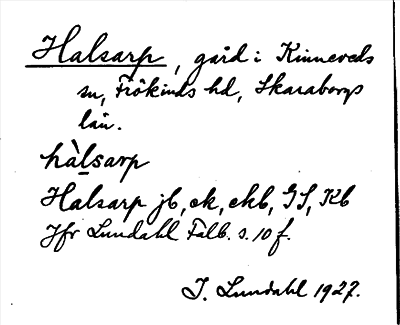 Halsarp, gård i Kinneveds
sn, Frökinds hd, Skaraborgs
län.
hàlsarp
Halsarp jb, ek, ekb, GS, Kb
Jfr Lundahl Falb. s. 10 f.
I. Lundahl 1927.